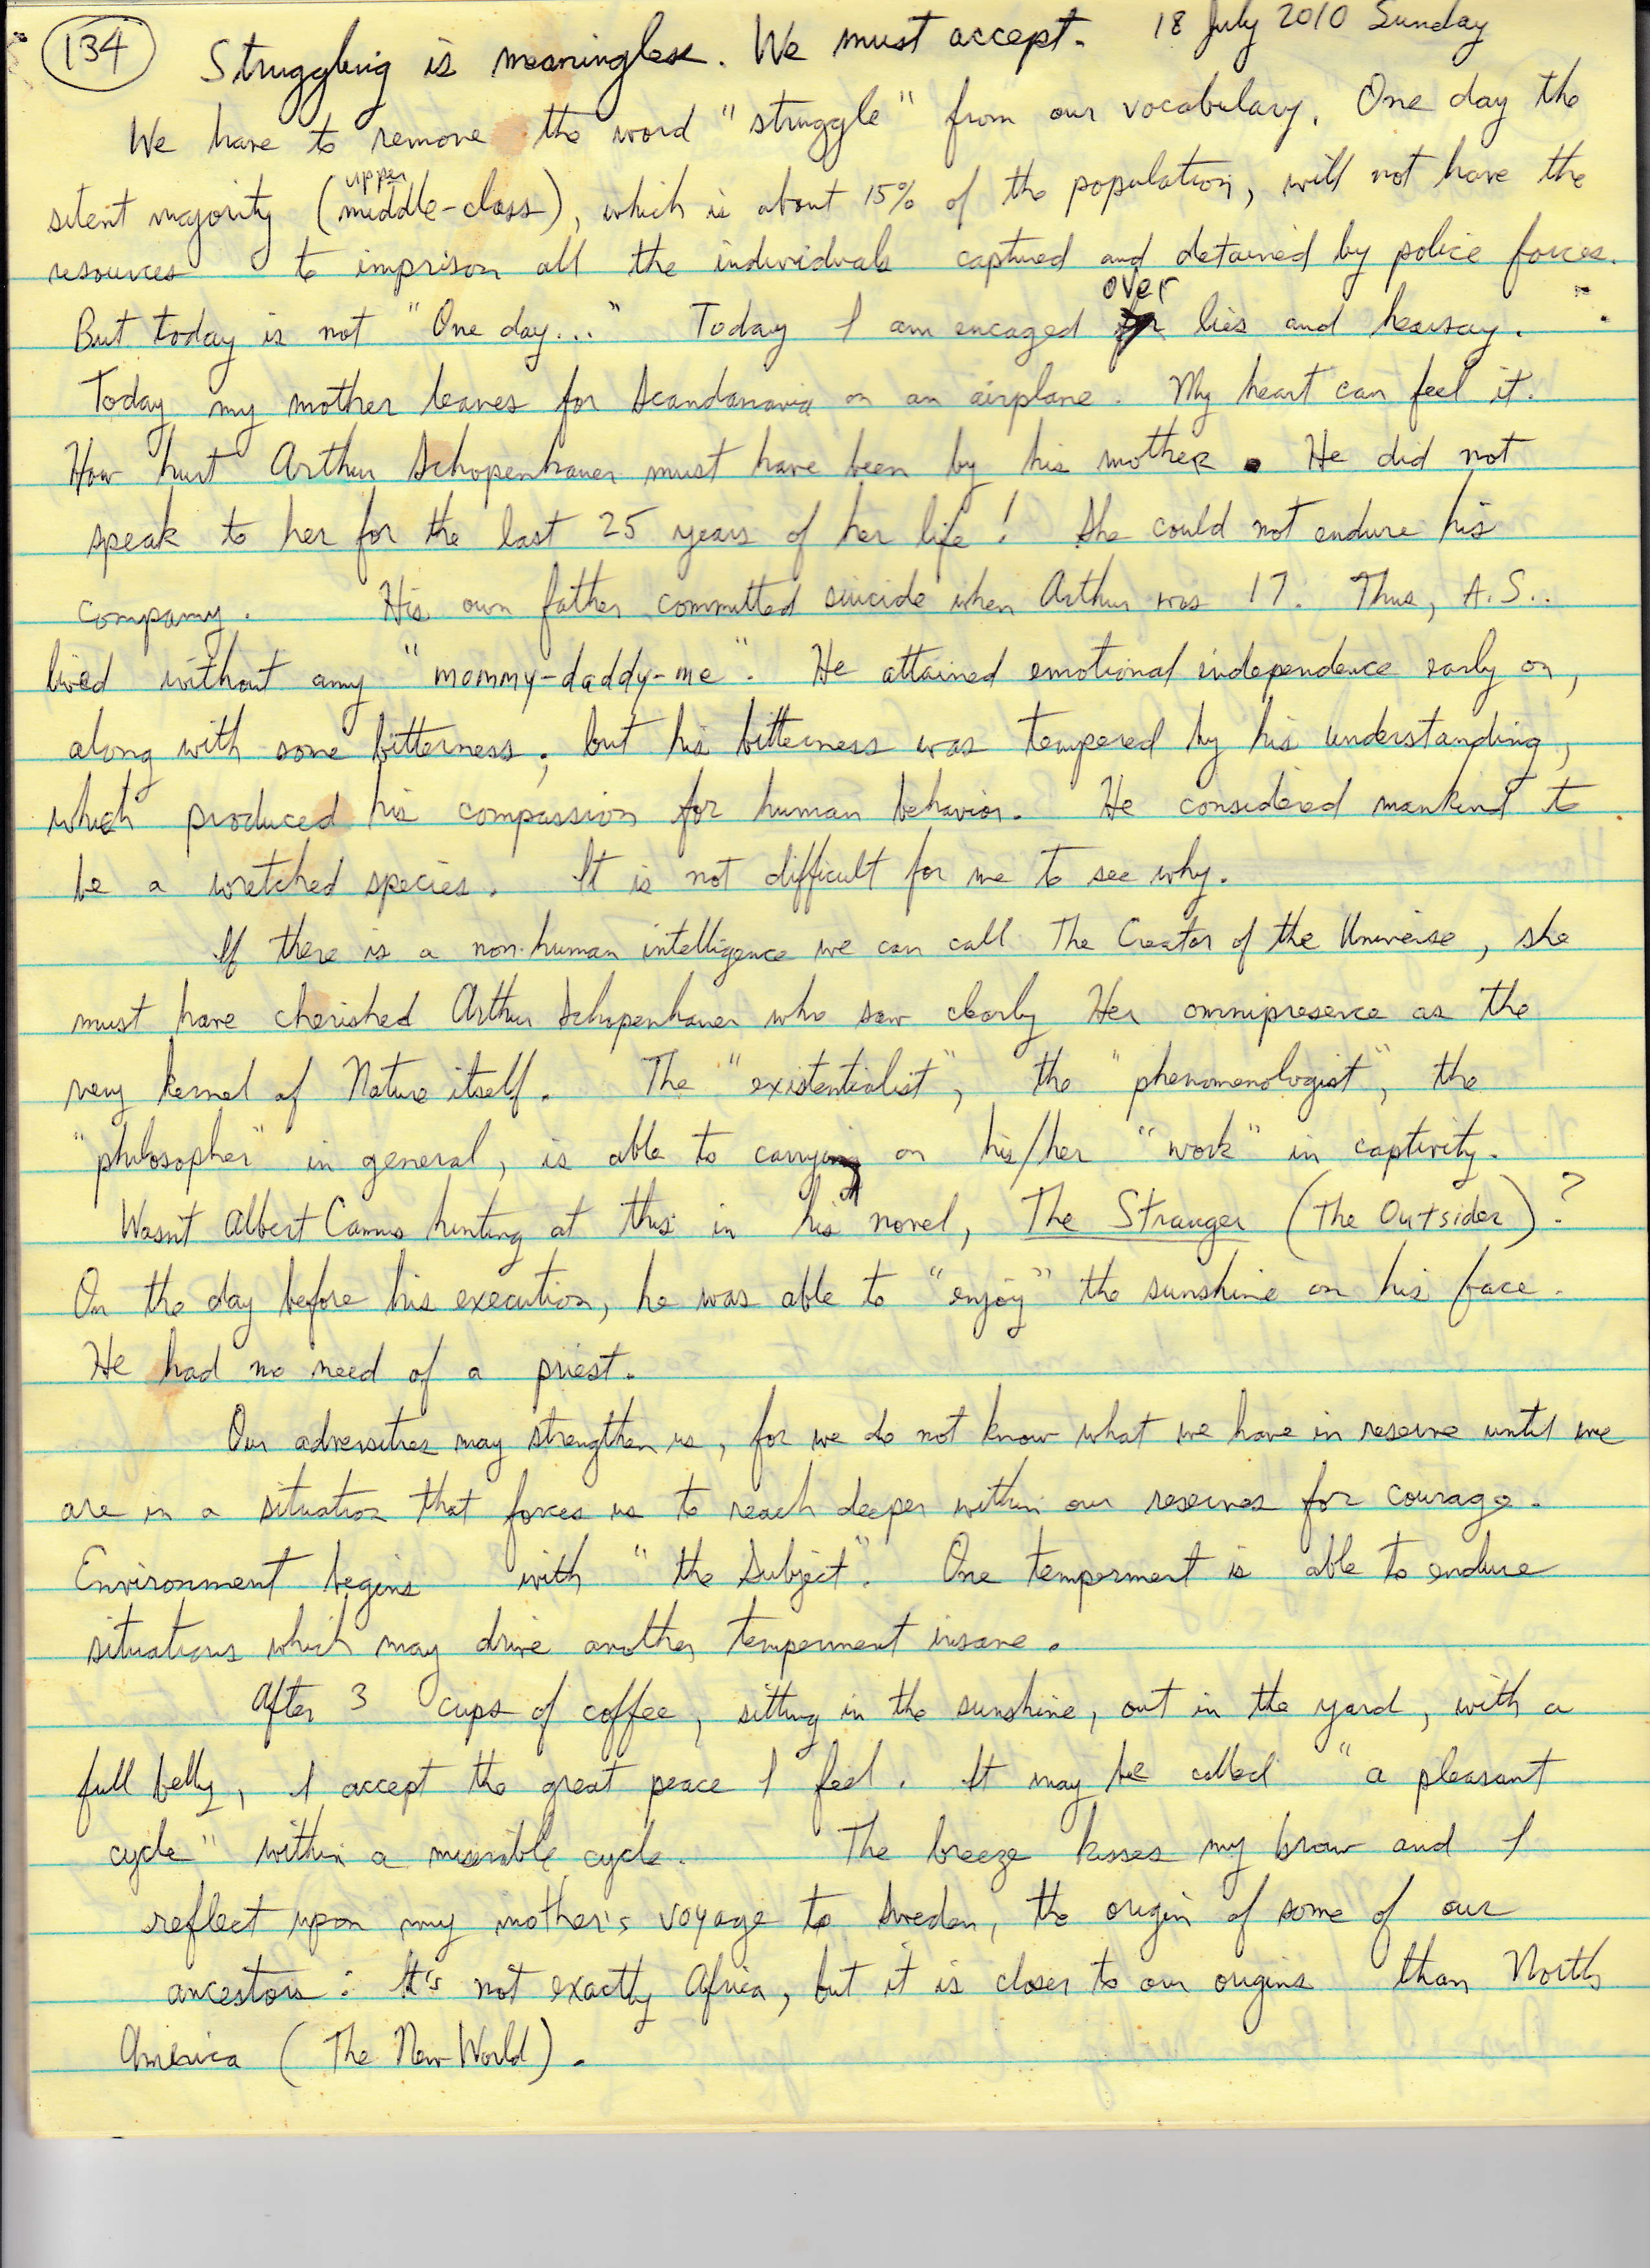 134 Struggling is meaningless. We must accept. 18 July 2010 Sunday
We have to remove the word "struggle" from our vocabulary. One day the
upper
silent majority (middle-class), which is about 15% of the population, will not have the
resources to imprison all the individuals captured and detained by police forces.
over
But today is not "One day..." Today I am encaged lies and hearsay.
Today my mother leaves for Scandanavia on an airplane. My heart can feel it.
How hurt Arthur Schopenhauer must have been by his mother. He did not
speak to her for the last 25 years of her life! She could not endure his
company. His own father committed suicide when Arthur was 17. Thus, A.S..
lived without any "mommy-daddy-me". He attained emotional independence early on,
along with some bitterness; but his bitterness was tempered by his understanding,
which produced his compassion for human behavior. He considered mankind to
be a wretched species. It is not difficult for me to see why.
If there is a non-human intelligence we can call The Creator of the Universe, she
must have cherished Arthur Schopenhauer who saw clearly Her omnipresence as the
very kernel of Nature itself. The "existentialist", the "phenomenologist", the
"philosopher" in general, is able to carrying on his/her "work" in captivity.
Wasn't Albert Camus hinting at this in his novel, The Stranger (The Outsider)?
On the day before his execution, he was able to "enjoy" the sunshine on his face.
He had no need of a priest.
Our adversities may strengthen us, for we do not know what we have in reserve until we
are in a situation that forces us to reach deeper within our reserves for courage.
Environment begins with "the Subject". One temperment is able to endure
situations which may drive another temperment insane.
After 3 cups of coffee, sitting in the sunshine, out in the yard, with a
full belly, I accept the great peace I feel. It may be called "a pleasant
cycle" within a miserable cycle. The breeze kisses my brow and I
reflect upon my mother's voyage to Sweden, the origin of some of our
ancestors: It's not exactly Africa, but it is closer to our origins than North
America (The New World).